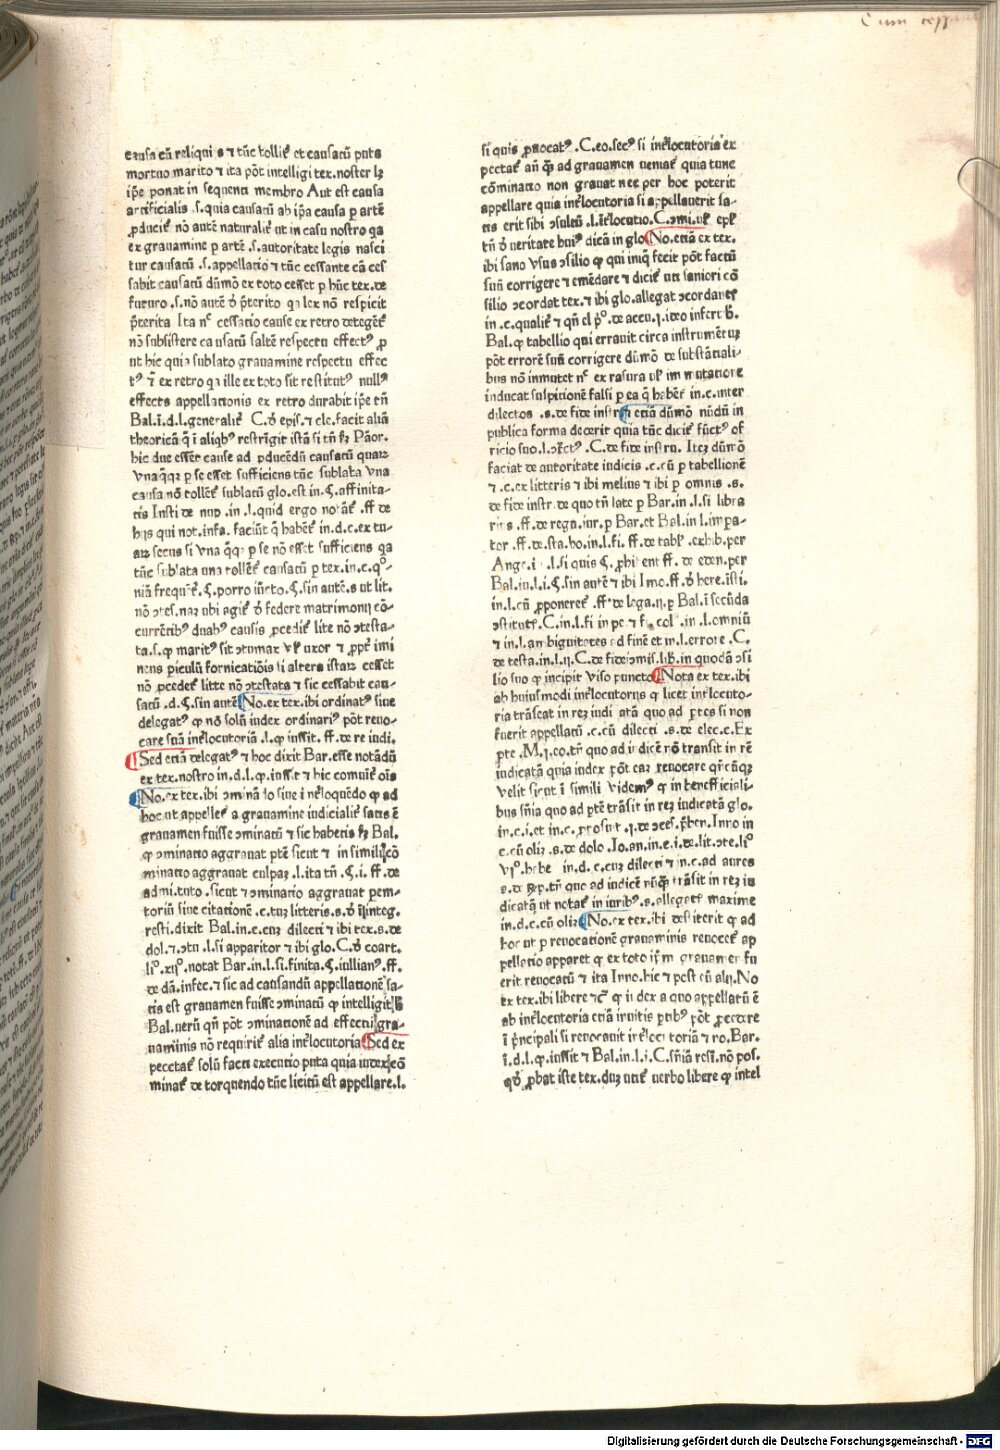 Cum cess
causa cū reliqui s ⁊ tūc tollit᷑ et causatū puta
mortuo marito ⁊ ita pōt intelligi tex. noster lꝫ
ip̄e ponat in sequenti membro Aut est causa
artificialis .s. quia causatū ab ip̄a causa ꝑ artē
ꝓducit᷑ nō autē naturalit᷑ ut in casu nostro qa
ex grauamine ꝑ artē .s. autoritate legis nasci
tur causatū .s. appellatio ⁊ tūc cessante cā ces
sabit causatū dūmō ex toto cesset ꝑ hūc tex. de
futuro .s. nō autē d̓ p̄terito qa lex nō respicit
p̄terita Ita nc̄ cessatio cause ex retro deteg̓et᷑
nō subsistere causatū saltē respectu effectꝰ ꝓ
ut hic quia sublato grauamine respectu effec
tꝰ ⁊ ex retro qa ille ex toto sit restitutꝰ nullꝰ
effectus appellationis ex retro durabit ip̄e tn̄
Bal. ī .d. l. generalit᷑ C. d̓ epis. ⁊ cle. facit aliā
theoricā q̄ ī aliqbꝰ restringit istā si tn̄ fꝫ Panor.
hic due essēt cause ad ꝓducēdū causatū quaꝝ
vnaq̄qꝫ ꝑ se esset sufficiens tūc sublata vna
causa nō tollet᷑ sublatū glo. est in .§. affinita-
tis Insti de nup .in .l. quid ergo notat᷑ .ff de
hijs qui not. infa. faciūt q̄ habet᷑ in .d. c. ex tu-
aꝝ secus si vna q̄qꝫ ꝑ se nō esset sufficiens qa
tūc sublata vna tollet᷑ causatū ꝑ tex. in .c. qͦ-
niā frequēt᷑ .§. porro in̄cto .§. sin autē .s ut lit.
nō ↄtes. naꝫ ubi agit᷑ d̓ federe matrimonij cō-
currētibꝰ duabꝰ causis ꝓcedit᷑ lite nō ↄtesta-
ta .s. ꝙ maritꝰ sit ↄtumax vl̓ uxor ⁊ ꝓpt̓ imi
nens piculū fornicatiōis si altera istaꝝ cesset
nō ꝓcedet᷑ litte nō ↄtestata ⁊ sic cessabit cau-
satū .d. §. sin autē No. ex tex. ibi ordinatꝰ siue
delegatꝰ ꝙ nō solū iudex ordinariꝰ pōt reuo-
care suā int̓locutoriā .l. ꝙ iussit. ff. de re iudi.
Sed etiā delegatꝰ ⁊ hoc dixit Bar. esse notādū
ex tex. nostro in .d. l. ꝙ iussit ⁊ hic comuit᷑ oēs
No. ex tex. ibi ↄminādo siue int̓loquēdo ꝙ ad
hoc ut appellet᷑ a grauamine iudiciali satis ē
grauamen fuisse ↄminatū ⁊ sic haberis fꝫ Bal.
ꝙ ↄminatio aggrauat ptē sicut ⁊ in simili cō
minatio aggrauat culpaꝫ .l. ita tn̄ .§. i. ff. de
admi. tuto. sicut ⁊ ↄminatio aggrauat pem-
toriū siue citationē .c. tuꝫ litteris .s. d̓ ī integ.
resti. dixit Bal. in .c. cuꝫ dilecti ⁊ ibi tex .s. de
dol. ⁊ ↄtu .l. si apparitor ⁊ ibi glo. C. d̓ coart.
liͦ. xijͦ. notat Bar. in .l. si finita .§. iulianꝰ .ff.
de dā. infec. ⁊ sic ad causandū appellationē sa-
tis est grauamen fuisse ↄminatū ꝙ intelligit h̓
Bal. uerū qn̄ pōt ↄminationē ad effectū gra-
uaminis nō requirit᷑ alia int̓locutoria Sed ex
pectat᷑ solū facti executio puta quia iudex cō
minat᷑ de torquendo tūc licitū est appellare .l.
si quis ꝓuocatꝰ .C. eo. secꝰ si int̓locutoria ex
pectat᷑ an̄ q̄ꝫ ad grauamen ueniat᷑ quia tunc
cōminatio non grauat nec per hoc poterit
appellare quia int̓locutoria si appellauerit sa-
tis erit sibi ↄsultū .l. int̓locutio. C. ↄmi. vl̓ epl̓
tn̄ d̓ ueritate huiꝰ dicā in glo No. etiā ex tex.
ibi sano vsus ↄsilio ꝙ qui iniq̄ fecit pōt factū
suū corrigere ⁊ emēdare ⁊ dicit᷑ uti saniori cō
silio ↄcordat tex. ⁊ ibi glo. allegat ↄcordantes
in .c. qualit᷑ ⁊ qn̄ el pͦ. de accu. ⁊ ideo infert h̓.
Bal. ꝙ tabellio qui errauit circa instrumētuꝫ
pōt errorē suū corrigere dūmō de substātiali-
bus nō inmutet nc̄ ex rasura vl̓ immutatione
inducat suspitionē falsi ꝑ ea q̄ habēt᷑ in .c. inter
dilectos .s. de fide instrū etiā dūmō nōdū in
publica forma decerit quia tūc dicit᷑ fūctꝰ of
ficio suo .l. ꝓfectꝰ .C. de fide instru. Iteꝫ dūmō
faciat de autoritate iudicis .c. cū ꝑ tabellionē
⁊ .c. ex litteris ⁊ ibi melius ⁊ ibi ꝑ omnis .s.
de fide instr. de quo tn̄ late ꝑ Bar. in .l. si libra
rius .ff. de rega. iur. ꝑ Bar. et Bal. in .l. impa-
tor .ff. de sta. ho. in .l. fi. ff. de tabl̓ .exhib. per
Ange. i .l. si quis §. ꝓhibent ff. de eden. per
Bal. in .l. i. §. sin autē ⁊ ibi Imo. ff. d̓ here. isti.
in .l. cū ꝓponeret᷑ .ff. de lega. ij. ꝑ Bal. ī secūda
ↄstitut᷑ .C. in .l. fi in pe. ⁊ fi. col .in .l. omniū
⁊ in .l. ambiguitates ad finē et in .l. errore .C.
de testa. in .l. ij. C. de fideↄmis. lib. in quodā ↄsi
lio suo ꝙ incipit Viso puncto Nota ex tex. ibi
ab huiusmodi int̓locutorijs ꝙ licet int̓locuto-
ria trāseat in reꝫ iudicatā quo ad ptes si non
fuerit appellatū .c. cū dilecti .s. de elec. c. Ex
pte .M. ⁊. co. tn̄ quo ad iudicē nō transit in rē
iudicatā quia iudex pōt eaꝫ reuocare qn̄cūqꝫ
velit sicut ī simili videmꝰ ꝙ in benefficiali-
bus sn̄ia quo ad ptē trāsit in reꝫ iudicatā glo.
in .c. i. et in .c. pro sut .⁊. de ↄces. p̄ben. Inno in
c. cū oliꝫ .s. de dolo. Io. an. in .c. i. de lit. ↄte. liͦ
viͦ. habe in .d. c. cuꝫ dilecti ⁊ in .c. ad aures
.s. de rescp. tn̄ quo ad iudicē nūqꝫ trāsit in reꝫ iu
dicatā ut notat᷑ in iuribꝰ .s. allegatꝭ maxime
in .d. c. cū oliꝫ No. ex tex. ibi destiterit ꝙ ad
hoc ut ꝑ reuocationē grauaminis reuocet᷑ ap
pellatio apparet ꝙ ex toto ip̄m grauamen fu
erit reuocatū ⁊ ita Inno. hic ⁊ post cū alij. No
ex tex. ibi libere ⁊c̄ ꝙ iudex a quo appellatū ē
ab int̓locutoria etiā inuitis ptibꝰ pōt ꝓcedere
ī p̄ncipali si reuocauit int̓locutoriā ⁊ ro. Bar.
ī .d. l. ꝙ iussit ⁊ Bal. in .l. i. C. sn̄iā resci. nō pos.
qd̓ ꝓbat iste tex. duꝫ utit᷑ uerbo libere ꝙ intel
Digitalisierung gefördert durch die Deutsche Forschungsgemeinschaft - DFG